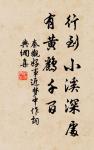 行到小溪深處
有黃鸝千百
秦觀好事近夢中作詞
典網集